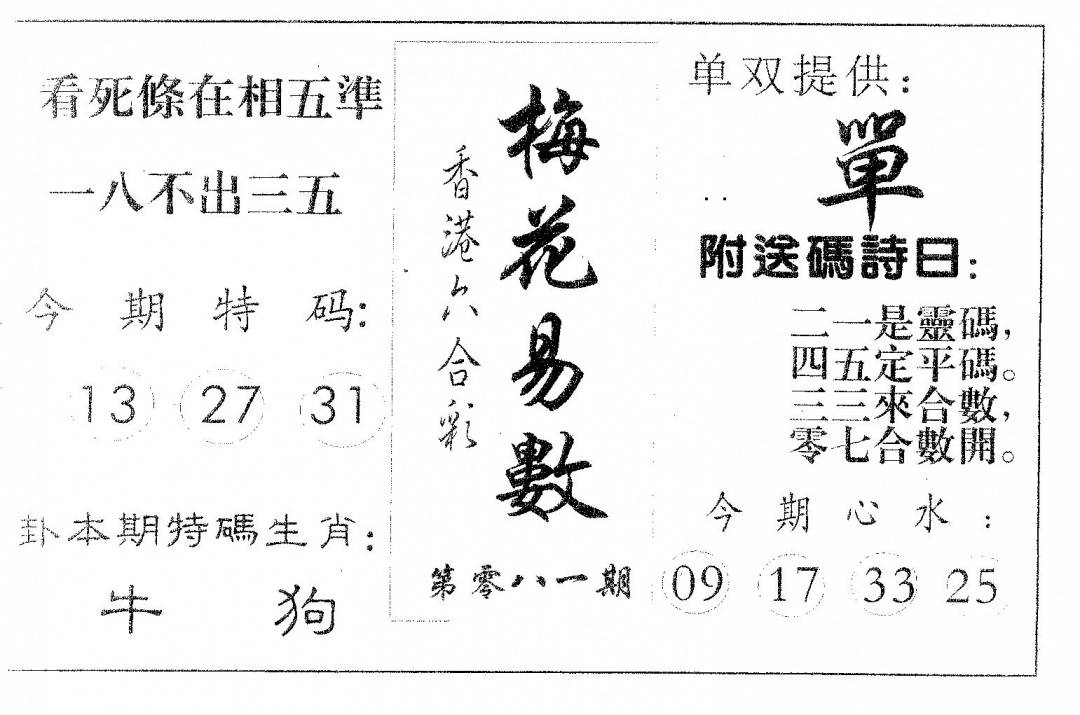 看死條在相五準
一八不出三五
今期特码:
13 27 31
卦本期特碼生肖:
牛 狗
梅花易數
香港六合彩
第零八一期
单双提供:
單
附送碼詩曰:
二一是靈碼,
四五定平碼。
三三來合數,
零七合數開。
今期心水:
09 17 33 25